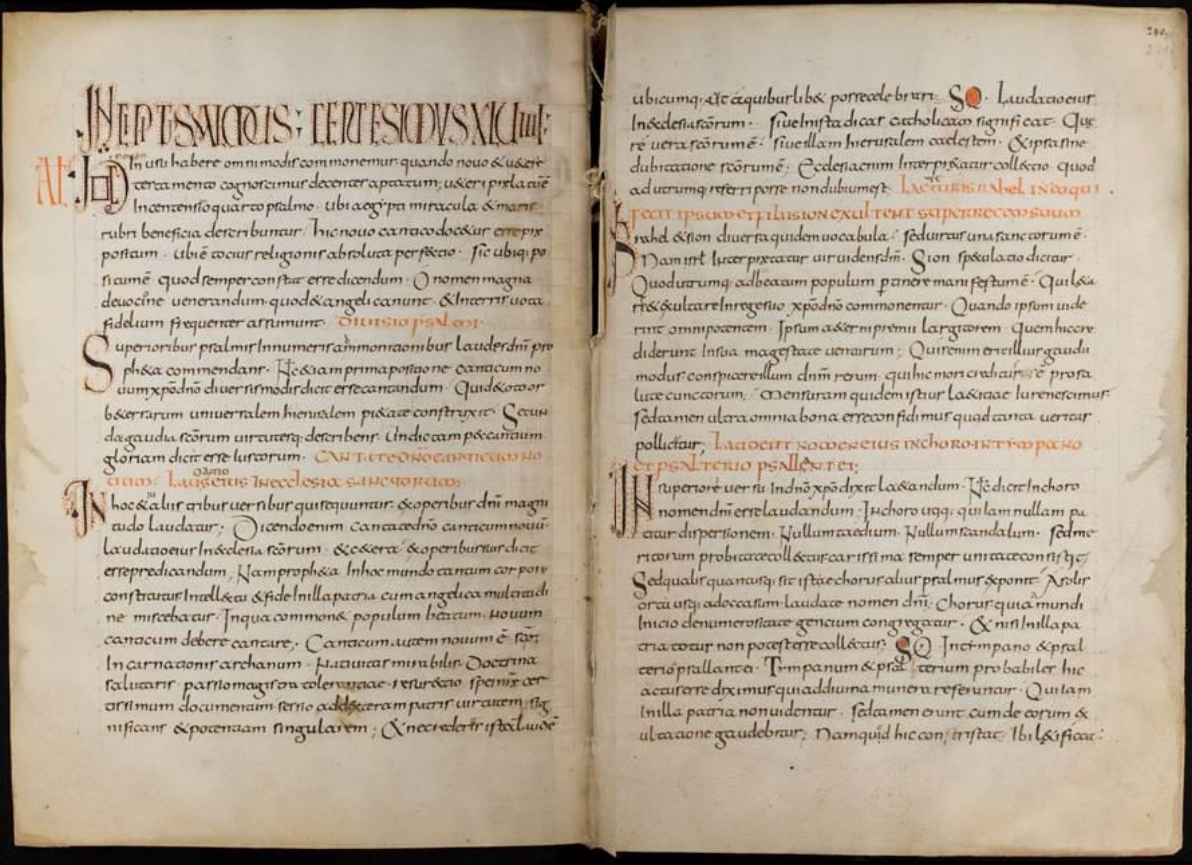 INCIPIT PSALMUS CENTESIMUS XLVIIII
In usu habere omnimodis commonemur quando nouo & ueteri
testamento cognoscimus decenter aptatum; ueteri
In centensimo quarto psalmo · ubi aegypti miracula & maris
rubri beneficia describuntur · hic nouo cantico docetur esse
positum · ubi ē tocius religionis absoluta perfectio · Sic ubiq; po
situm ē quod semper constat esse dicendum · O nomen magna
deuocione uenerandum · quod & angeli canunt · & In terris uota
fidelium frequenter assumunt · DIUISIO PSALMI
Superioribus psalmis Innumeris ammonitionibus laudes dnī pro
pheta commendans · Nc &iam prima positione canticum no
uum xpō dnō diuersis modis dicit esse cantandum · Quid & toto or
be terrarum uniuersalem hierusalem pietate construxit · Secun
da gaudia scōrum uirtutesq; describens · Undictam peccantium
gloriam dicit esse Iustorum · CANTATE DNO CANTICUM NO
UUM · LAUS EIUS IN ECCLESIA SANCTORUM
In hoc & aliis tribus uersibus qui sequuntur · & operibus dnī magni
tudo laudatur; Dicendo enim cantate dnō canticum nouū
laudatio eius In ecclesia scōrum · & cetera & operibus suis dicit
esse predicandum, Nam propheta In hoc mundo tantum corpore
constitutus Intellectu & fide In illa patria cum angelica multitudi
ne miscebatur · In qua commonet populum beatum · nouum
canticum debere cantare; Canticum autem nouum ē
Incarnationis archanum · Natiuitas mirabilis · Doctrina
salutaris · passio magistra tolerantiae · resurrectio spei nrē cer
tissimum documentum · sessio ad dexteram patris uirtutem sig
nificans & potentiam singularem; & ne crederes ista laude
240.
ubicumq; aut a quibuslibet posse celebrari · SQ · Laudatio eius
In ecclesia scōrum · siue In ista dicas catholicam significat · Quę
re uera scōrum ē · siue illam hierusalem caelestem · & ipsa sine
dubitatione scōrum ē; Ecclesia enim Interpretatur collectio quod
ad utrumq; referri posse non dubium est · LAETETUR ISRAHEL IN EO QUI
FECIT IPSUM ET FILII SION EXULTENT SUPER REGEM SUUM
Israhel & sion diuersa quidem uocabula · sed uirtus una sanctorum ē ·
Nam isrł Interpretatur uir uidens dm̄ · Sion speculatio dicitur ·
Quod utrumq; ad beatum populum pertinere manifestum ē · Qui læta
ri & exultare In rege suo xpō dnō commonentur · Quando ipsum uide
rint omnipotentem · Ipsum aeterni premii largitorem · Quem hic cre
diderunt In sua magestate uenturum; Quis enim erit illius gaudii
modus conspicere illum dnm̄ rerum · qui hic mori creditur ē pro sa
lute cunctorum; Mensuram quidem istius laetitiae Iure nescimus ·
Sed tamen ultra omnia bona esse confidimus quod tanta ueritas
pollicetur; LAUDENT NOMEN EIUS IN CHORO · IN TYMPANO
ET PSALTERIO PSALLENT EI;
In superiore uersu In dnō xpō dixit laetandum · Nc dicit In choro
nomen dnī esse laudandum · In choro utiq; qui iam nullam pa
titur dispersionem · Nullum taedium · Nullum scandalum · sed me
ritorum probitate collectus carissima semper unitate consistit;
Sed qualis quantusq; sit iste chorus alius psalmus exponit · A solis
ortu usq; ad occasum laudate nomen dnī; Chorus quia a mundi
Inicio de numerositate gentium congregatur · & nisi In illa pa
tria totus non potest esse collectus · SQ · In tympano & psal
terio psallant ei · Tympanum & psalterium probabiliter hic
accusse diximus qui ad diuina munera referuntur · Qui iam
In illa patria non uidentur · sed tamen erunt cum de eorum ex
ultatione gaudebitur; Namquid hic contristat · Ibi lætificat ·